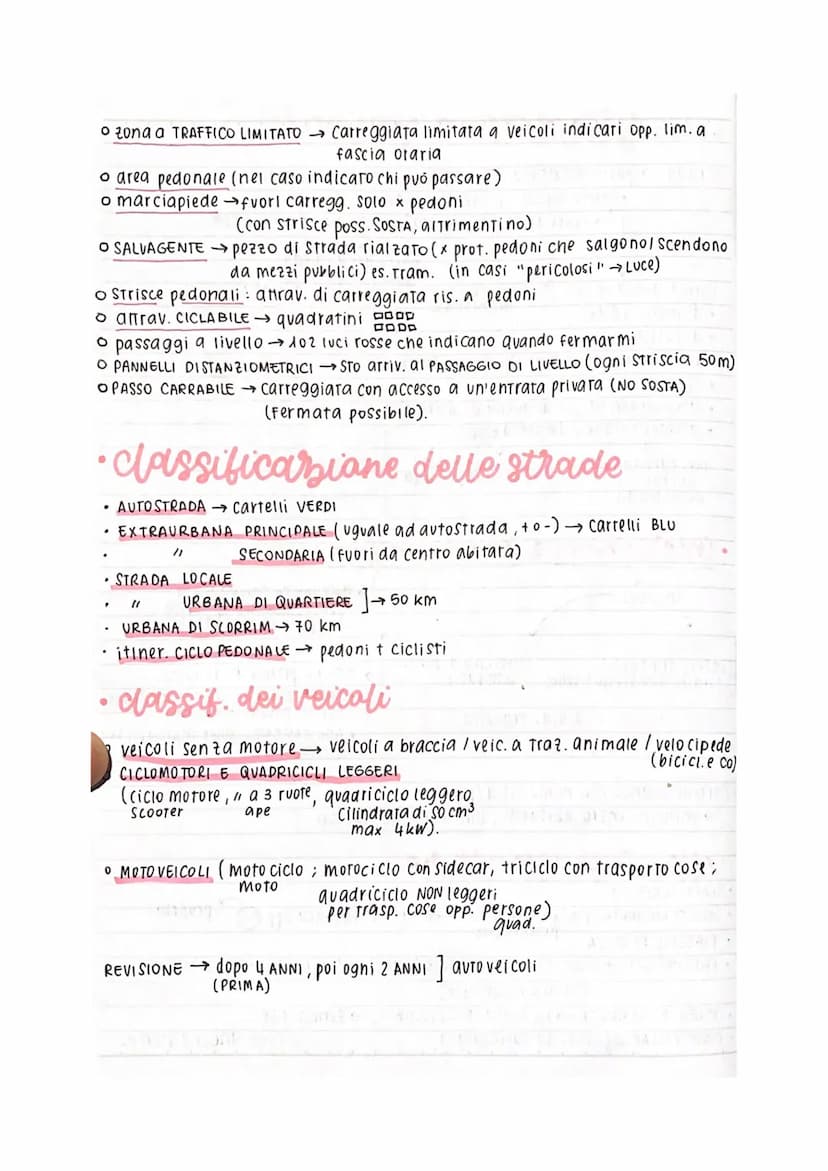 o zona a TRAFFICO LIMITATO → carreggiata limitata a veicoli indicati opp. lim. a
fascia oraria
o area pedonale (nel caso indicato chi può passare)
o marciapiede → fuori carregg. solo x pedoni
(con strisce poss. SOSTA, altrimenti no)
o SALVAGENTE → pezzo di strada rialzato (x prot. pedoni che salgono/scendono
da mezzi pubblici) es. tram. (in casi "pericolosi" → luce)
o strisce pedonali: attrav. di carreggiata ris. a pedoni
o attrav. CICLABILE → quadratini
o passaggi a livello → 1o2 luci rosse che indicano quando fermarmi
o PANNELLI DISTANZIOMETRICI → sto arriv. al PASSAGGIO DI LIVELLO (ogni striscia 50m)
o PASSO CARRABILE → carreggiata con accesso a un'entrata privata (NO SOSTA)
(fermata possibile).
• classificazione delle strade
• AUTOSTRADA → cartelli VERDI
• EXTRAURBANA PRINCIPALE (uguale ad autostrada, + o -) → cartelli BLU
• " SECONDARIA (fuori da centro abitata)
• STRADA LOCALE
• " URBANA DI QUARTIERE ] → 50 km
• URBANA DI SCORRIM. → 70 km
• itiner. CICLO PEDONALE → pedoni + ciclisti
• classif. dei veicoli
veicoli senza motore → veicoli a braccia / veic. a traz. animale / velocipede
(bicicl. e co)
CICLOMOTORI E QUADRICICLI LEGGERI
(ciclo motore, " a 3 ruote, quadriciclo leggero
scooter ape cilindrata di 50 cm³
max 4kW).
o MOTOVEICOLI (moto ciclo ; motociclo con sidecar, triciclo con trasporto cose ;
moto quadriciclo NON leggeri
per trasp. cose opp. persone)
quad.
REVISIONE → dopo 4 ANNI, poi ogni 2 ANNI ] autoveicoli
(PRIMA)